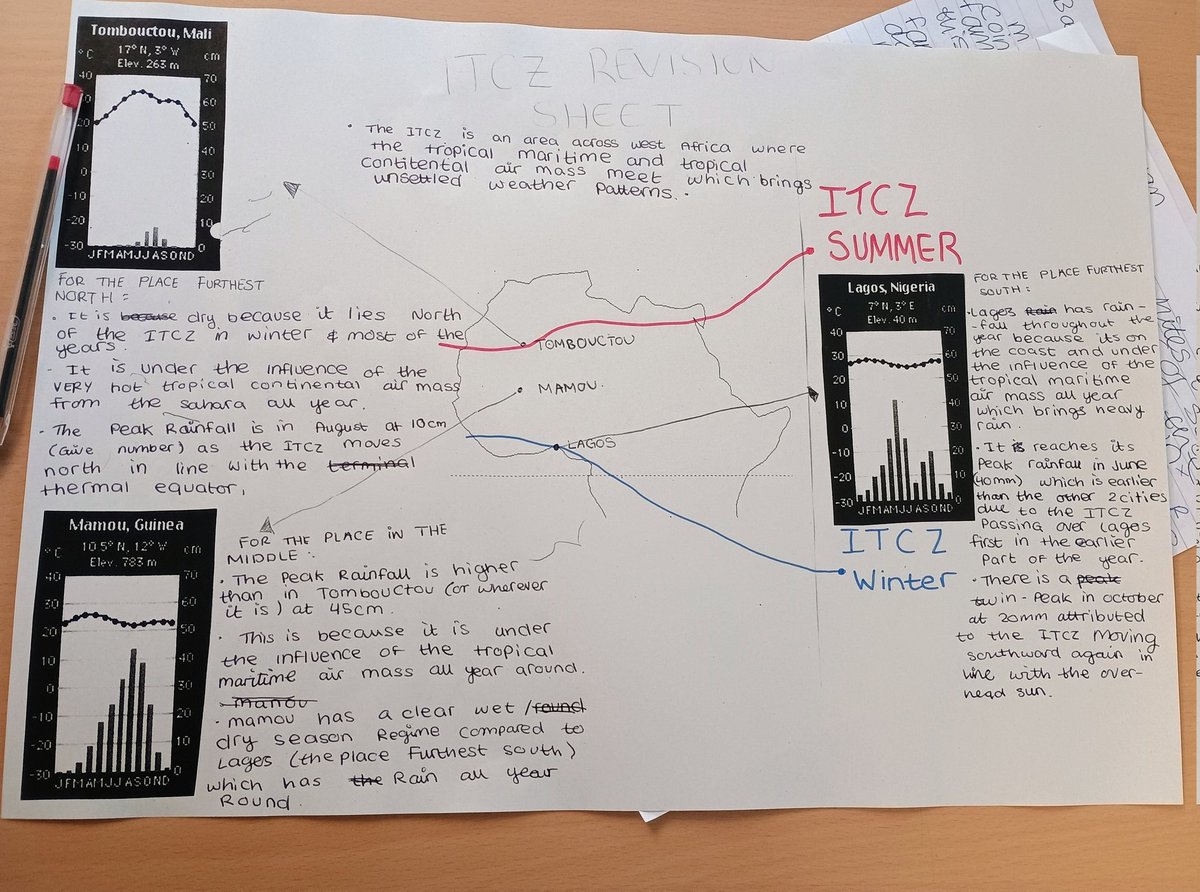 ITCZ REVISION
SHEET
• The ITCZ is an area across west Africa where
the tropical maritime and tropical
contitental air mass meet which brings
unsettled weather patterns.
Tombouctou, Mali
17° N, 3° W
Elev. 263 m
°C
cm
40
30
20
10
0
-10
-20
-30
70
60
50
40
30
20
10
0
JFMAMJJASOND
FOR THE PLACE FURTHEST
NORTH:
• It is because dry because it lies North
of the ITCZ in winter & most of the
years
- It is under the influence of the
VERY hot tropical continental air mass
from the sahara all year.
• The Peak Rainfall is in August at 10cm
(Give number) as the ITCZ moves
north in line with the terminal
thermal equator,
ITCZ
SUMMER
TOMBOUCTOU
MAMOU.
LAGOS
ITCZ
Winter
Mamou, Guinea
10.5° N, 12° W
Elev. 783 m
°C
cm
40
30
20
10
0
-10
-20
-30
70
60
50
40
30
20
10
0
JFMAMJJASOND
FOR THE PLACE IN THE
MIDDLE:
• The Peak Rainfall is higher
than in Tombouctou (or wherever
it is) at 45cm.
• This is because it is under
the influence of the tropical
maritime air mass all year around.
- mamou
• mamou has a clear wet /round
dry season Regime compared to
Lages (the place Furthest south)
which has the Rain all year
Round.
Lagos, Nigeria
7° N, 3° E
Elev. 40 m
°C
cm
40
30
20
10
0
-10
-20
-30
70
60
50
40
30
20
10
0
JFMAMJJASOND
FOR THE PLACE FURTHEST
SOUTH:
• Lages Rain has rain-
-fall throughout the
year because its on
the coast and under
the influence of the
tropical maritime
air mass all year
which brings heavy
rain.
• It is reaches its
Peak rainfall in June
(40mm) which is earlier
than the other 2 cities
due to the ITCZ
Passing over Lagos
first in the earlier
part of the year.
• There is a peak
twin-Peak in october
at 20mm attributed
to the ITCZ moving
southward again in
line with the over-
head sun.